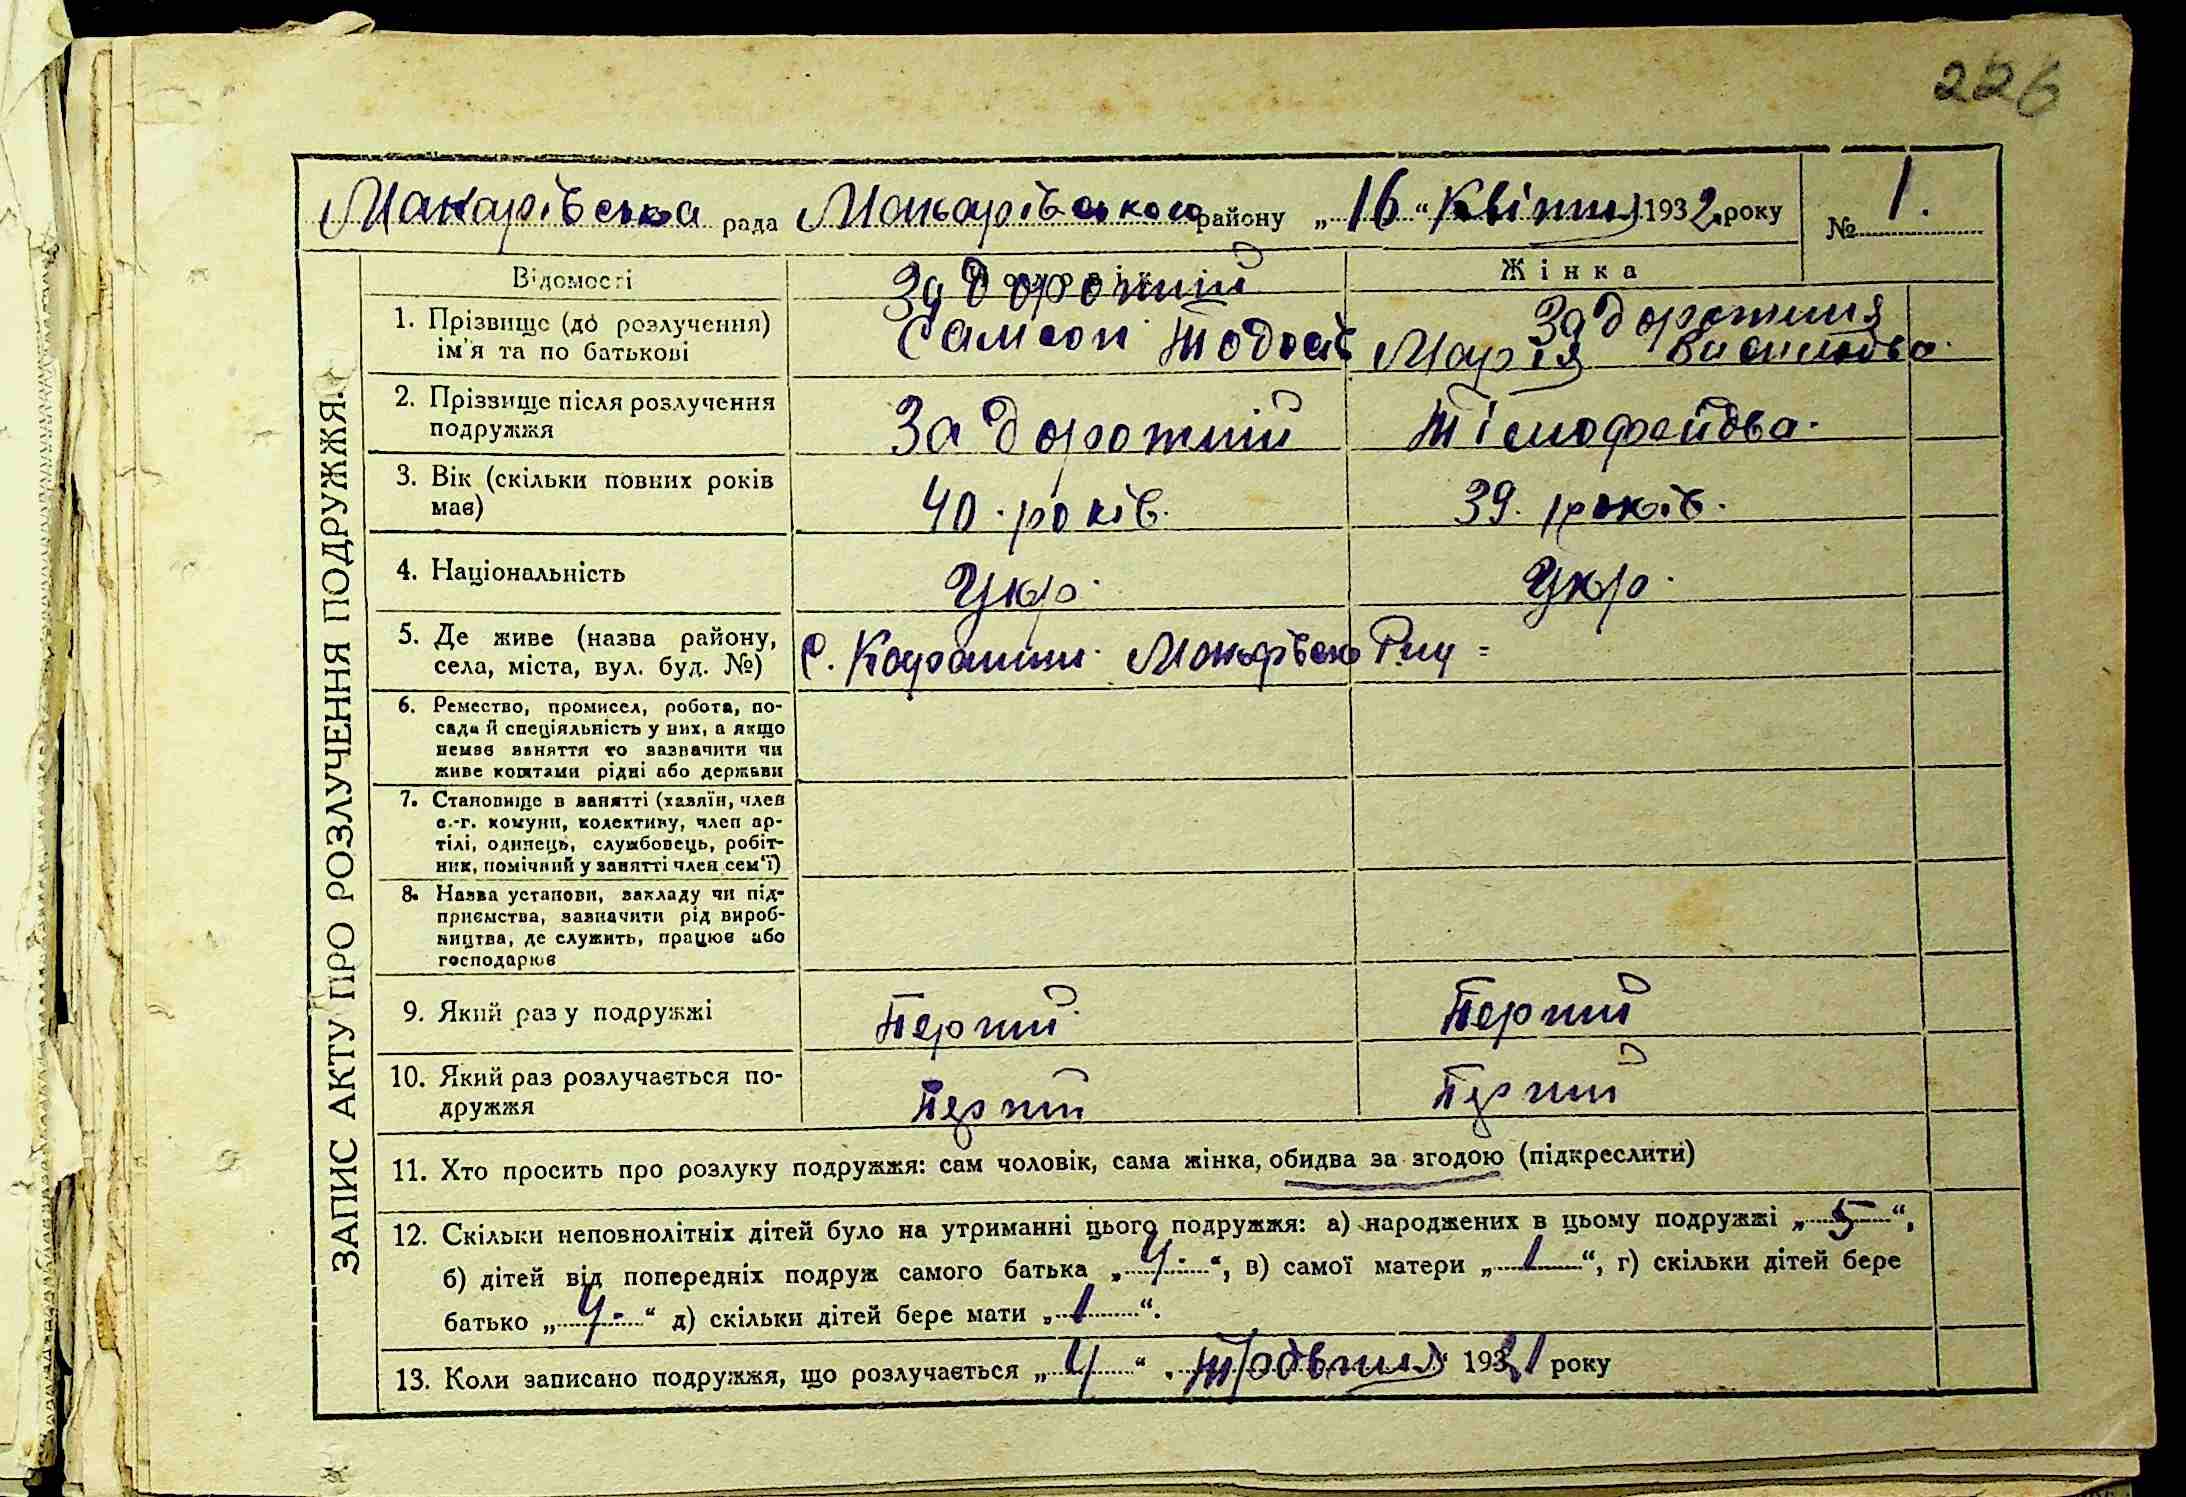 226
Макарівська рада Макарівського району „16“ Квітня 1932 року № 1.
ЗАПИС АКТУ ПРО РОЗЛУЧЕННЯ ПОДРУЖЖЯ.
Відомості
Жінка
1. Прізвище (до розлучення)
ім'я та по батькові
Задорожній
Самсон Тодос
Задорожня
Марія Василівва.
2. Прізвище після розлучення
подружжя
Задорожній
Тімофейова.
3. Вік (скільки повних років
має)
40. років.
39. років.
4. Національність
Укр.
Укр.
5. Де живе (назва району,
села, міста, вул. буд. №)
С. Колонщини
6. Ремество, промисел, робота, по-
сада й спеціяльність у них, а якщо
немає заняття то зазначити чи
живе коштами рідні або держави
7. Становище в занятті (хазяїн, член
с.-г. комуни, колективу, член ар-
тілі, одинець, службовець, робіт-
ник, помічний у занятті член сем'ї)
8. Назва установи, закладу чи під-
приємства, зазначити рід вироб-
ництва, де служить, працює або
господарює
9. Який раз у подружжі
Перший
Перший
10. Який раз розлучається по-
дружжя
Перший
Перший
11. Хто просить про розлуку подружжя: сам чоловік, сама жінка, обидва за згодою (підкреслити)
12. Скільки неповнолітніх дітей було на утриманні цього подружжя: а) народжених в цьому подружжі „5“,
б) дітей від попередніх подруж самого батька „4-“, в) самої матери „1“, г) скільки дітей бере
батько „4-“ д) скільки дітей бере мати „1“.
13. Коли записано подружжя, що розлучається „4“ 1921 року